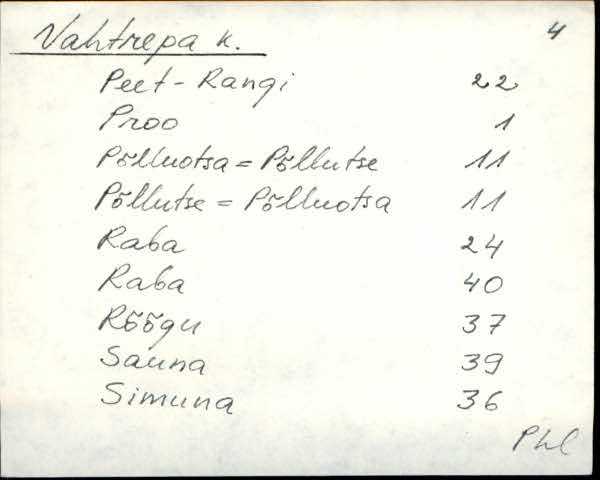 Vahtrepa k. 4
Peet-Rangi 22
Proo 1
Põlluotsa = Põllutse 11
Põllutse = Põlluotsa 11
Raba 24
Raba 40
Rõõgu 37
Sauna 39
Simuna 36
Phl